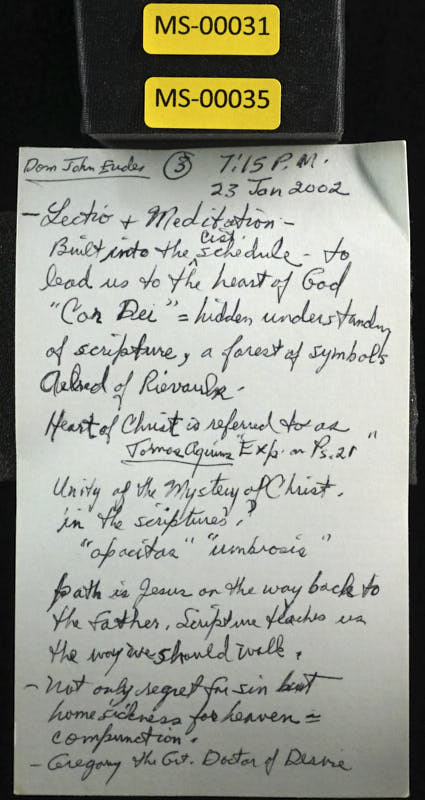 MS-00031
MS-00035
Dom John Eudes ③ 7:15 P.M.
23 Jan 2002
- Lectio + Meditation -
Built into the cist. schedule - to
lead us to the heart of God
"Cor Dei" = hidden understanding
of scripture, a forest of symbols
Aelred of Rievaulx.
Heart of Christ is referred to as
"Exp. on Ps. 21"
Unity of the Mystery of Christ.
in the scriptures.
"opacitas" "umbrosis"
path is Jesus on the way back to
the Father. Scripture teaches us
the way we should walk.
- Not only regret for sin but
homesickness for heaven =
compunction.
- Gregory the Grt. Doctor of Desire